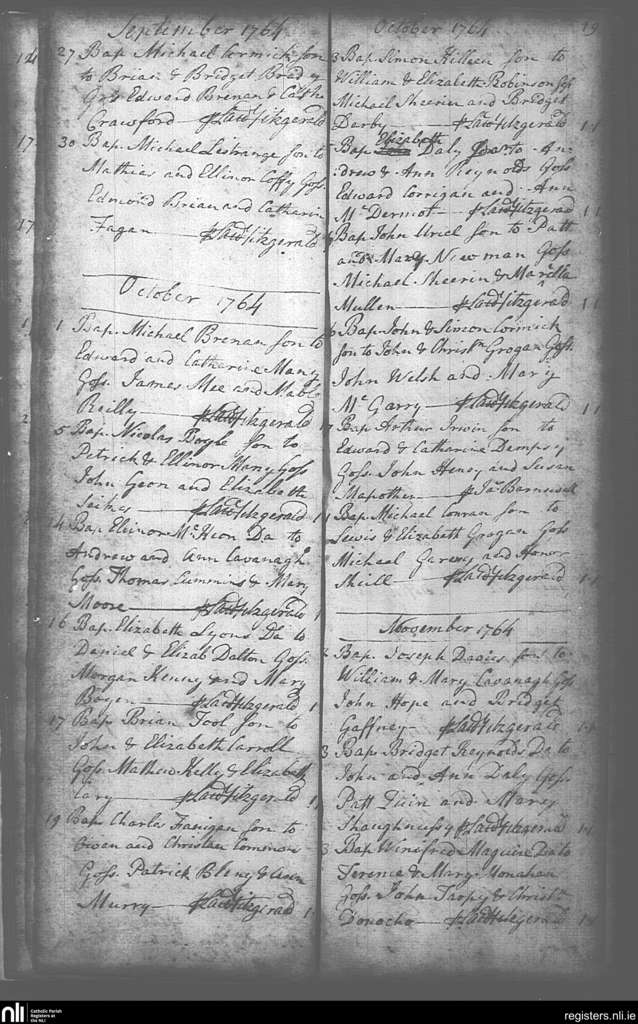 September 1764
27 Bap. Michael Cormick son
to Brian & Bridget Brady
Gss Edward Brenan & Cathe
Crawford — Laud Fitzgerald
30 Bap. Michael Lestrange son to
Mathias and Ellinor Coffy Goss.
Edmond Brian and Catharin
Fagan — Laud Fitzgerald
October 1764
1 Bap. Michael Brenan son to
Edward and Catharine Many
Goss. James Mee and Mable
Reilly — Laud Fitzgerald
5 Bap. Nicolas Boyle son to
Petrick & Ellinor Many Goss
John Geon and Elizabeth
— Laud Fitzgerald
Bap Elinore McKeon Da to
Andrew and Ann Cavanagh
Goss. Thomas Cummins & Mary
Moore — Laud Fitzgerald
16 Bap. Elizabeth Lyons Da to
Daniel & Elizab Dalton Goss.
Morgan Kenny and Mary
— Laud Fitzgerald
17 Bap. Brian Tool son to
John & Elizabeth Carroll
Goss Mathew Kelly & Elizabeth
Cary — Laud Fitzgerald
19 Bap. Charles Flanigan son to
Owan and Christian
Goss. Patrick & Ann
Murry — Laud Fitzgerald
October 1764
19
3 Bap. Simon Killeen son to
William & Elizabeth Robinson Gss
Michael Sheerin and Bredget
Derby — Laud Fitzgerald
Bap Elizabeth Daly to An
:drew & Ann Reynolds Goss
Edward Corrigan and Ann
McDermot — Laud Fitzgerald
Bap. John Uriel son to Patt
and Mary Newman Goss
Michael Sheerin &
Mullen — Laud Fitzgerald
Bap. John & Simon Cormick
son to John & Christn Grogan Goss.
John Welsh and Mary
McGarry — Laud Fitzgerald
Bap Arthur Irwin son to
Edward & Catharine Dempsy
Goss. John Heney and Susan
Mapother — Jas Barnewall
Bap. Michael Conran son to
Lewis & Elizabeth Grogan Goss
Michael Garvey and Honor
Shiell — Laud Fitzgerald
November 1764
Bap. Joseph Davies son to
William & Mary Cavanagh Goss
John Hope and Bridget
Gaffney — Laud Fitzgerald
3 Bap Bridget Reynolds Da to
John and Ann Daly Goss
Patt Quin and Mary
Shaughnessy Laud Fitzgerald
3 Bap Winifred Maguire Da to
Terence & Mary Monahan
Goss. John Tarpy & Christn
Donocho — Laud Fitzgerald
nli Catholic Parish Registers at the NLI
registers.nli.ie